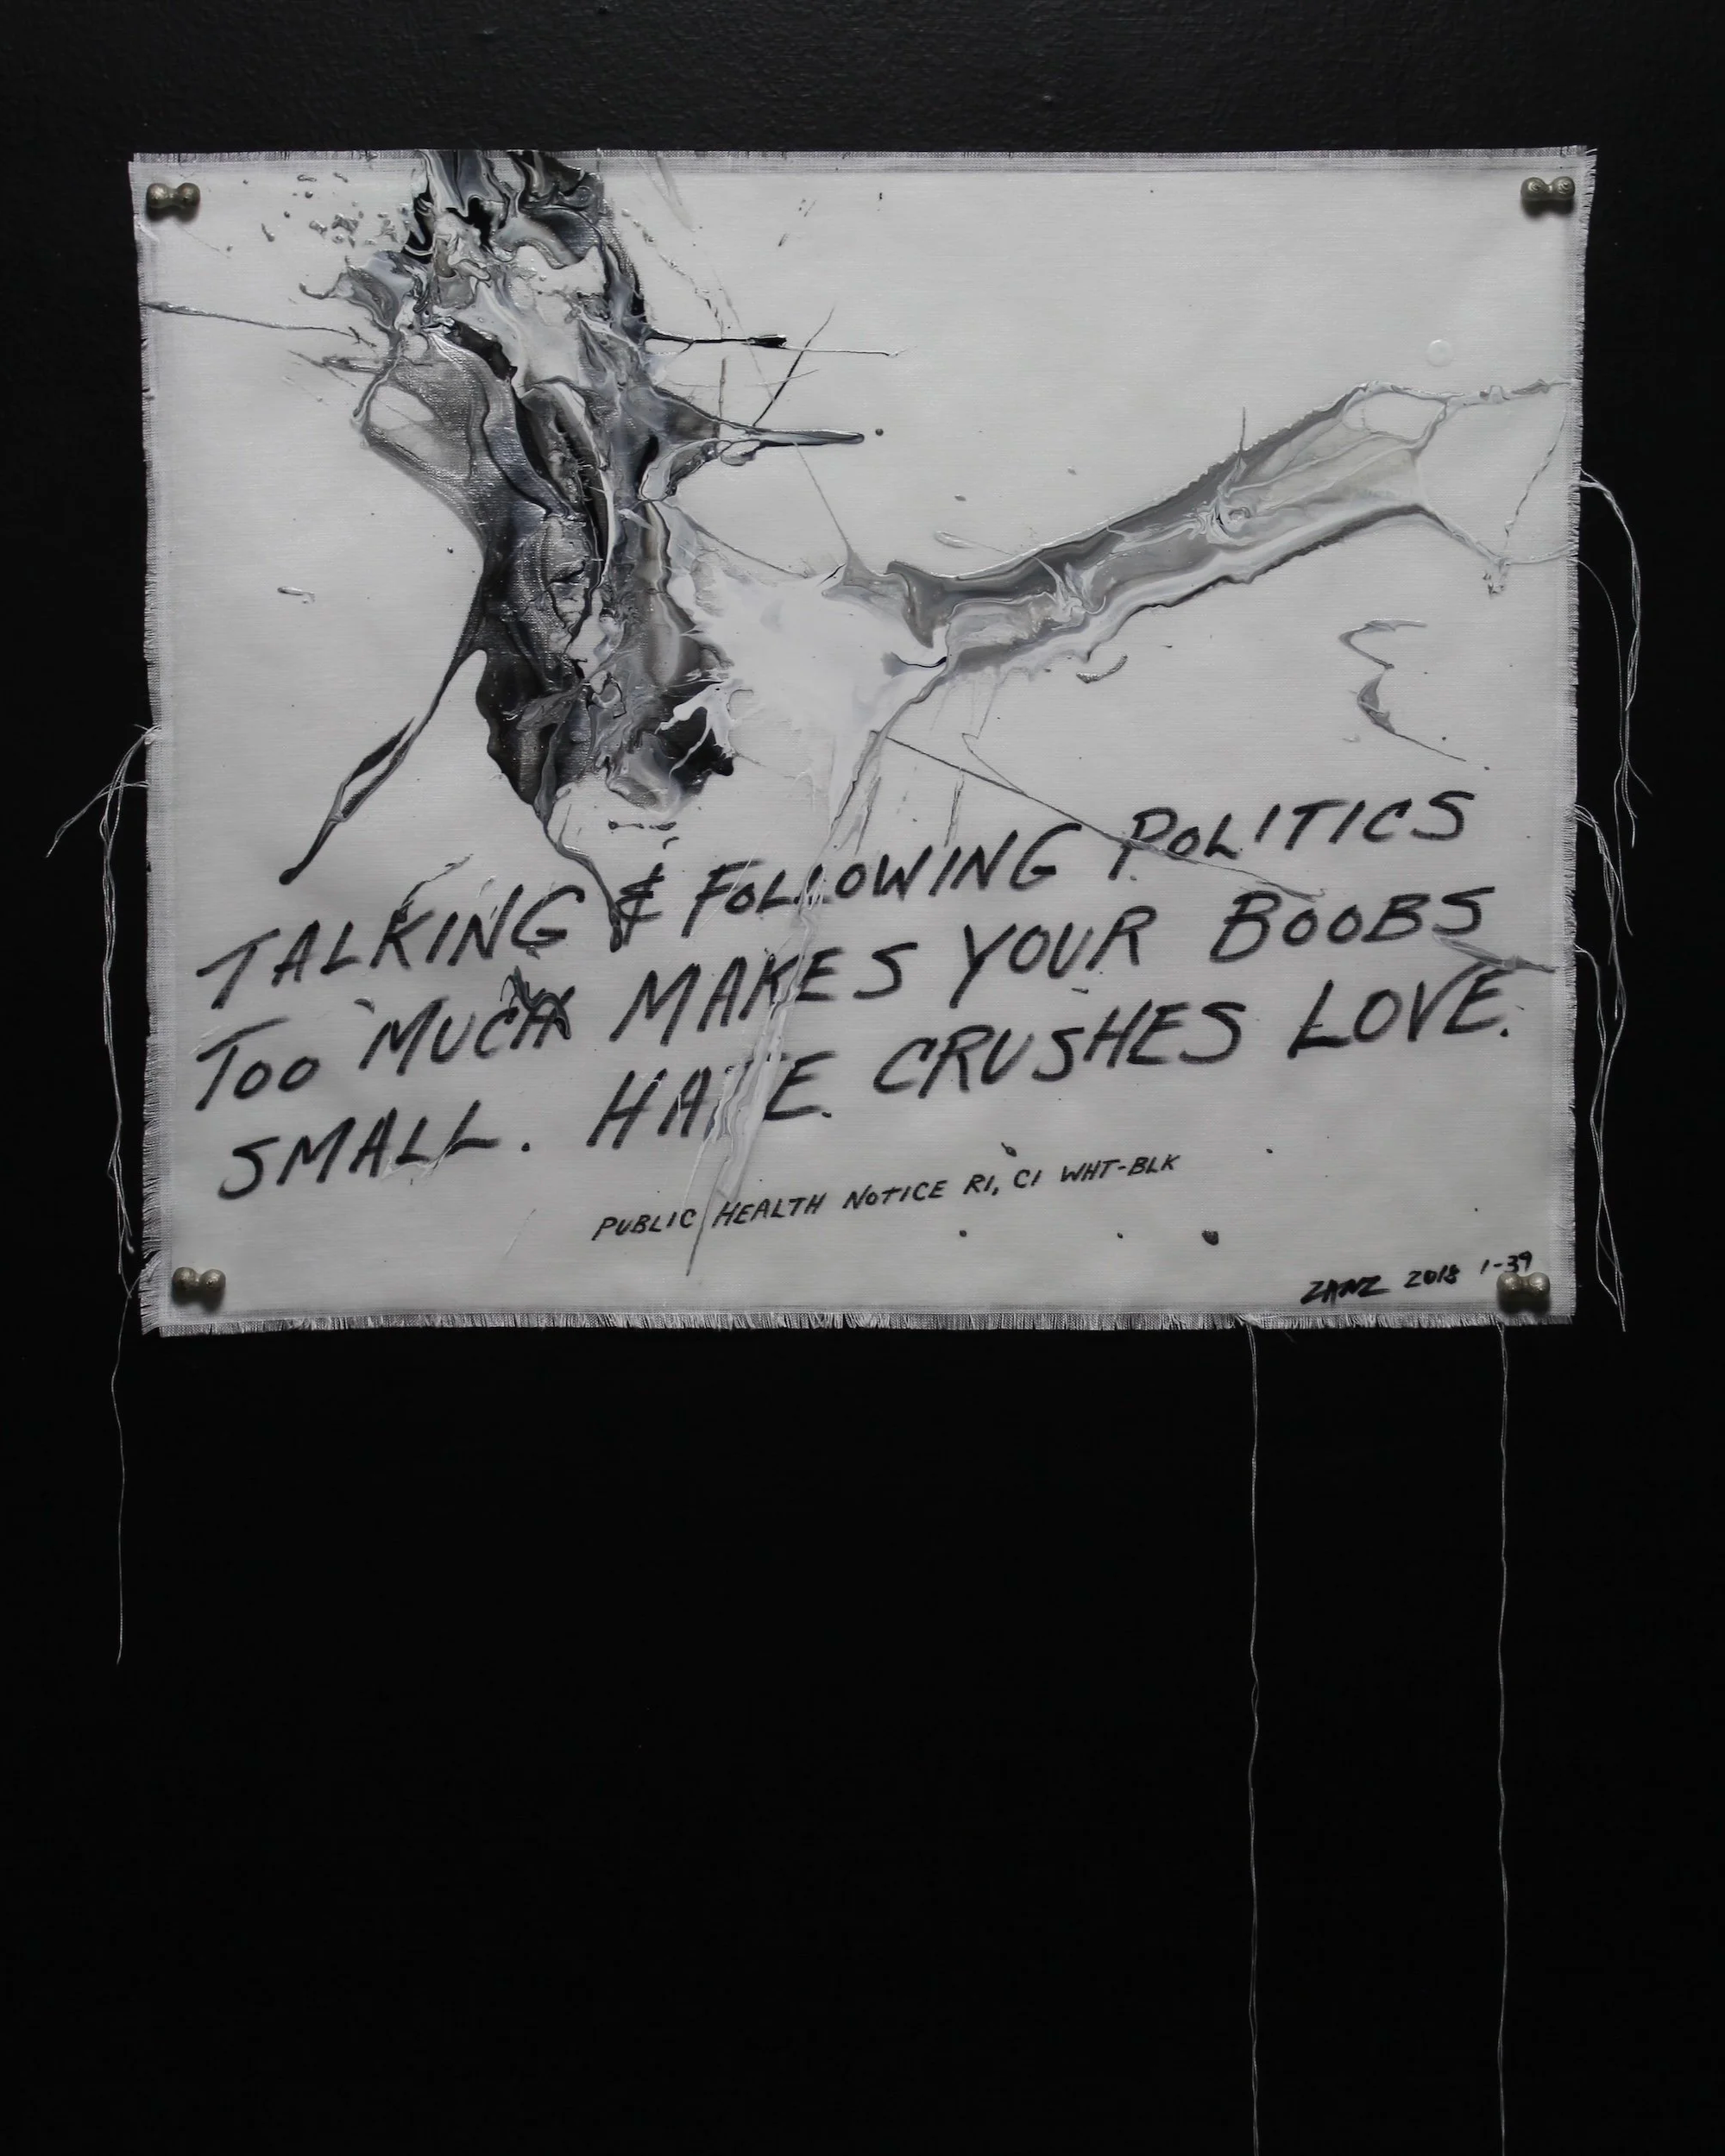 TALKING & FOLLOWING POLITICS
TOO MUCH MAKES YOUR BOOBS
SMALL. HATE CRUSHES LOVE.
PUBLIC HEALTH NOTICE R1, C1 WHT-BLK
ZANZ 2018 1-39